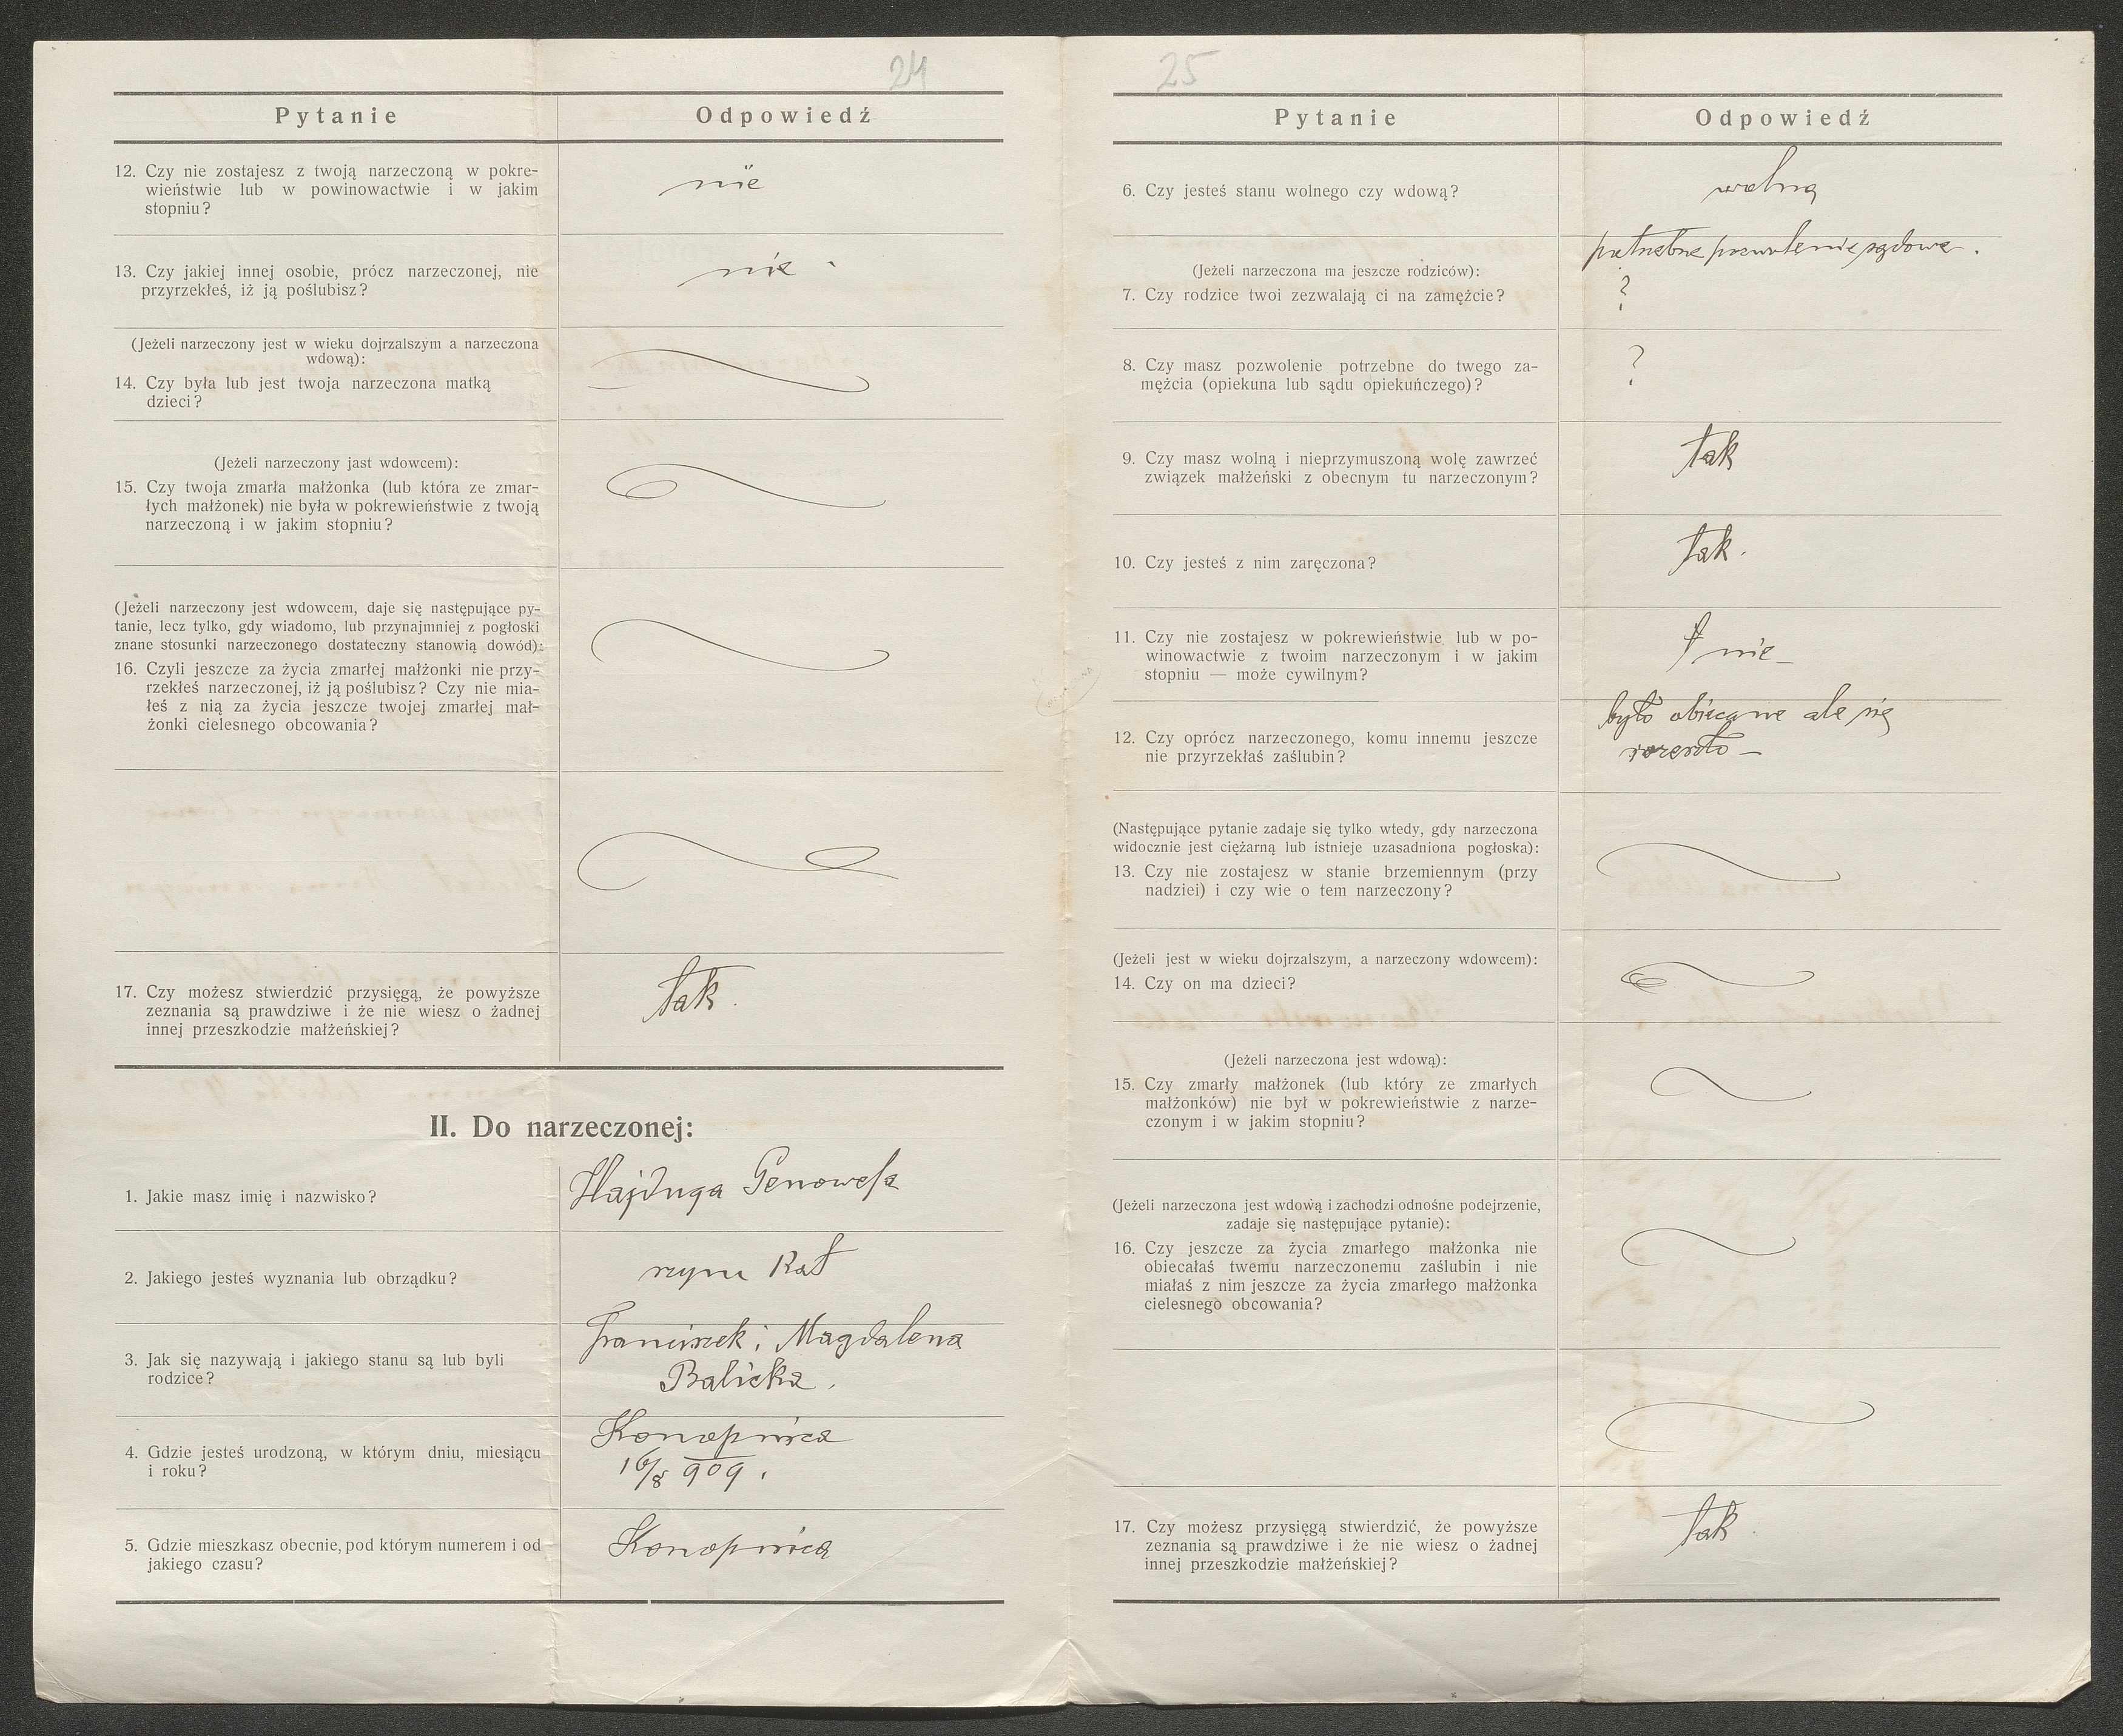 24
Pytanie
Odpowiedź
12. Czy nie zostajesz z twoją narzeczoną w pokre-
wieństwie lub w powinowactwie i w jakim
stopniu?
nie
13. Czy jakiej innej osobie, prócz narzeczonej, nie
przyrzekłeś, iż ją poślubisz?
nie
(Jeżeli narzeczony jest w wieku dojrzalszym a narzeczona
wdową):
14. Czy była lub jest twoja narzeczona matką
dzieci?
(Jeżeli narzeczony jast wdowcem):
15. Czy twoja zmarła małżonka (lub która ze zmar-
łych małżonek) nie była w pokrewieństwie z twoją
narzeczoną i w jakim stopniu?
(Jeżeli narzeczony jest wdowcem, daje się następujące py-
tanie, lecz tylko, gdy wiadomo, lub przynajmniej z pogłoski
znane stosunki narzeczonego dostateczny stanowią dowód):
16. Czyli jeszcze za życia zmarłej małżonki nie przy-
rzekłeś narzeczonej, iż ją poślubisz? Czy nie mia-
łeś z nią za życia jeszcze twojej zmarłej mał-
żonki cielesnego obcowania?
17. Czy możesz stwierdzić przysięgą, że powyższe
zeznania są prawdziwe i że nie wiesz o żadnej
innej przeszkodzie małżeńskiej?
tak.
II. Do narzeczonej:
1. Jakie masz imię i nazwisko?
Hajduga Genowefa
2. Jakiego jesteś wyznania lub obrządku?
rzym Kat
3. Jak się nazywają i jakiego stanu są lub byli
rodzice?
Franciszek i Magdalena
Balicka.
4. Gdzie jesteś urodzoną, w którym dniu, miesiącu
i roku?
Konopnica
16/8 909.
5. Gdzie mieszkasz obecnie, pod którym numerem i od
jakiego czasu?
Konopnica
25
Pytanie
Odpowiedź
6. Czy jesteś stanu wolnego czy wdową?
wolną
potrzebne pozwolenie sądowe.
(Jeżeli narzeczona ma jeszcze rodziców):
7. Czy rodzice twoi zezwalają ci na zamęźcie?
?
8. Czy masz pozwolenie potrzebne do twego za-
mężcia (opiekuna lub sądu opiekuńczego)?
?
9. Czy masz wolną i nieprzymuszoną wolę zawrzeć
związek małżeński z obecnym tu narzeczonym?
tak
10. Czy jesteś z nim zaręczona?
tak.
11. Czy nie zostajesz w pokrewieństwie lub w po-
winowactwie z twoim narzeczonym i w jakim
stopniu — może cywilnym?
nie —
12. Czy oprócz narzeczonego, komu innemu jeszcze
nie przyrzekłaś zaślubin?
było obiecane ale się
rozeszło —
(Następujące pytanie zadaje się tylko wtedy, gdy narzeczona
widocznie jest ciężarną lub istnieje uzasadniona pogłoska):
13. Czy nie zostajesz w stanie brzemiennym (przy
nadziei) i czy wie o tem narzeczony?
(Jeżeli jest w wieku dojrzalszym, a narzeczony wdowcem):
14. Czy on ma dzieci?
(Jeżeli narzeczona jest wdową):
15. Czy zmarły małżonek (lub który ze zmarłych
małżonków) nie był w pokrewieństwie z narze-
czonym i w jakim stopniu?
(Jeżeli narzeczona jest wdową i zachodzi odnośne podejrzenie,
zadaje się następujące pytanie):
16. Czy jeszcze za życia zmarłego małżonka nie
obiecałaś twemu narzeczonemu zaślubin i nie
miałaś z nim jeszcze za życia zmarłego małżonka
cielesnego obcowania?
17. Czy możesz przysięgą stwierdzić, że powyższe
zeznania są prawdziwe i że nie wiesz o żadnej
innej przeszkodzie małżeńskiej?
tak